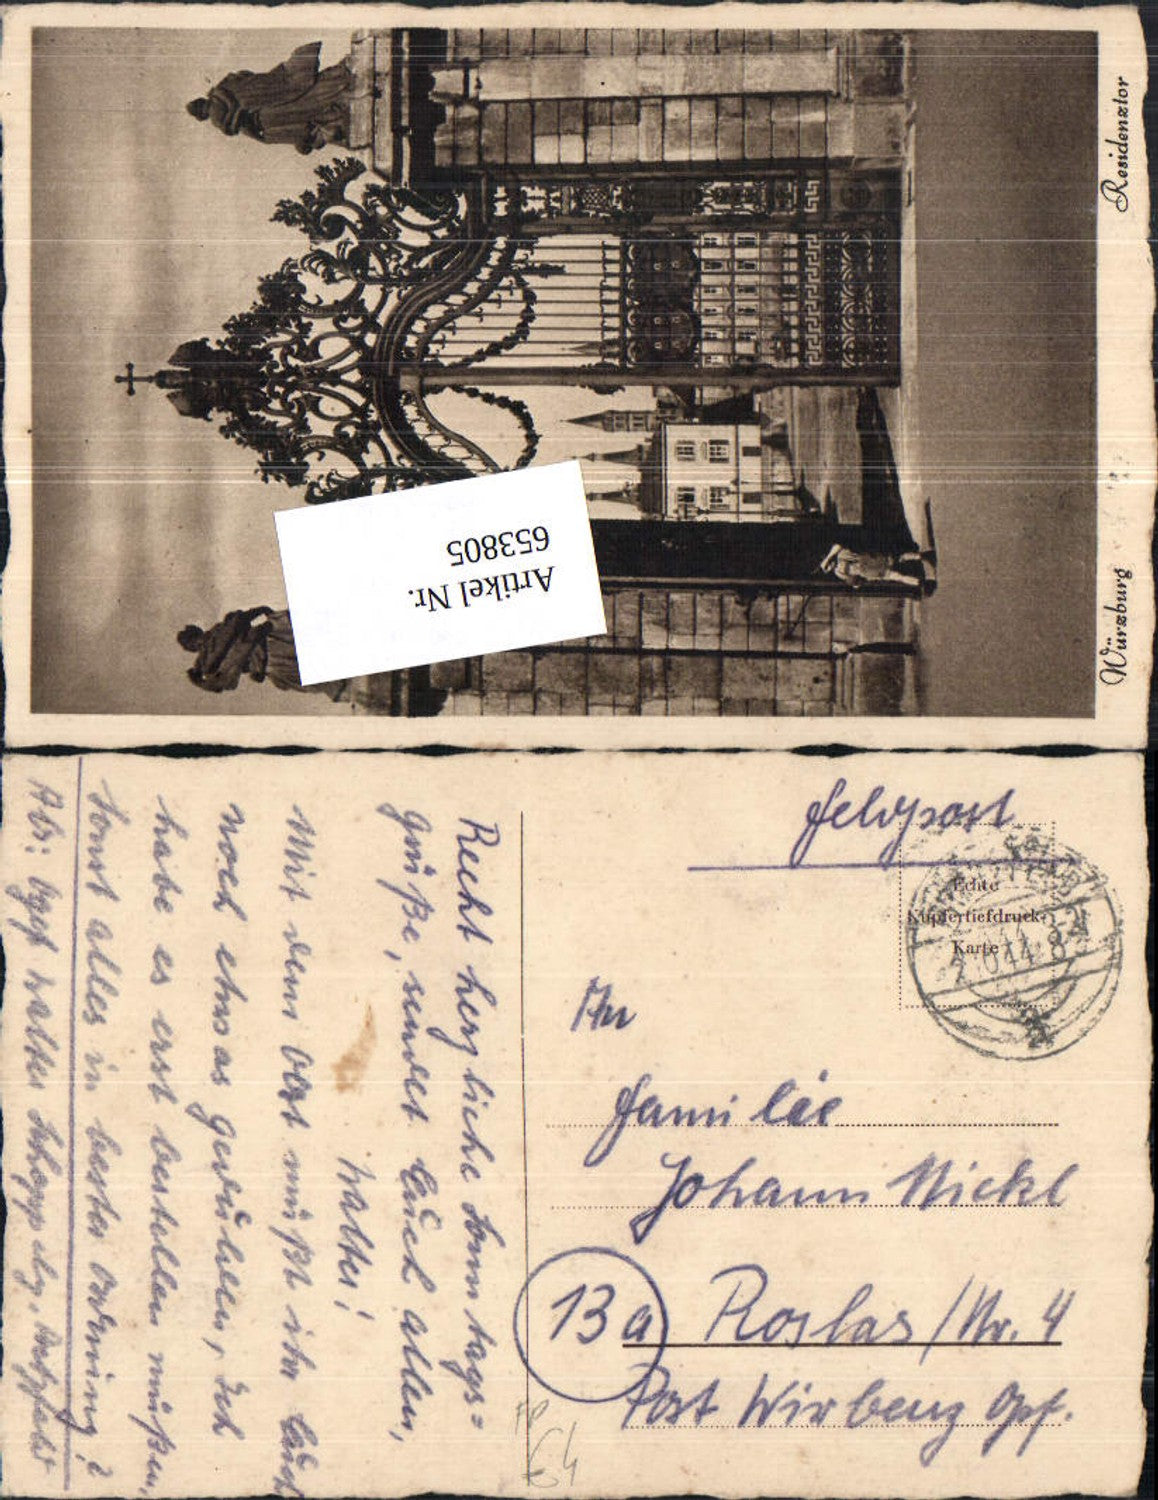 Würzburg Residenztor
Artikel Nr.
653805
Feldpost
Echte
Kupfertiefdruck-
Karte
An
Familie
Johann Nickl
13a Roslas / Nr. 4
Post Wirbenz Opf.
Recht herzliche Sonntags=
grüße, sendet Euch allen,
Walter!
Mit dem Obst müßt ihr Euch
noch etwas gedulden, Ich
habe es erst bestellen müßen,
sonst alles in bester Ordnung?
Abs: Walter